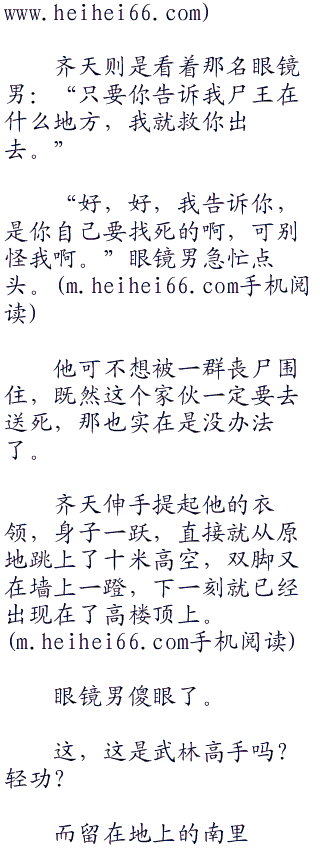 www.heihei66.com)
齐天则是看着那名眼镜
男：“只要你告诉我尸王在
什么地方，我就救你出
去。”
“好，好，我告诉你，
是你自己要找死的啊，可别
怪我啊。”眼镜男急忙点
头。(m.heihei66.com手机阅
读)
他可不想被一群丧尸围
住，既然这个家伙一定要去
送死，那也实在是没办法
了。
齐天伸手提起他的衣
领，身子一跃，直接就从原
地跳上了十米高空，双脚又
在墙上一蹬，下一刻就已经
出现在了高楼顶上。
(m.heihei66.com手机阅读)
眼镜男傻眼了。
这，这是武林高手吗？
轻功？
而留在地上的南里